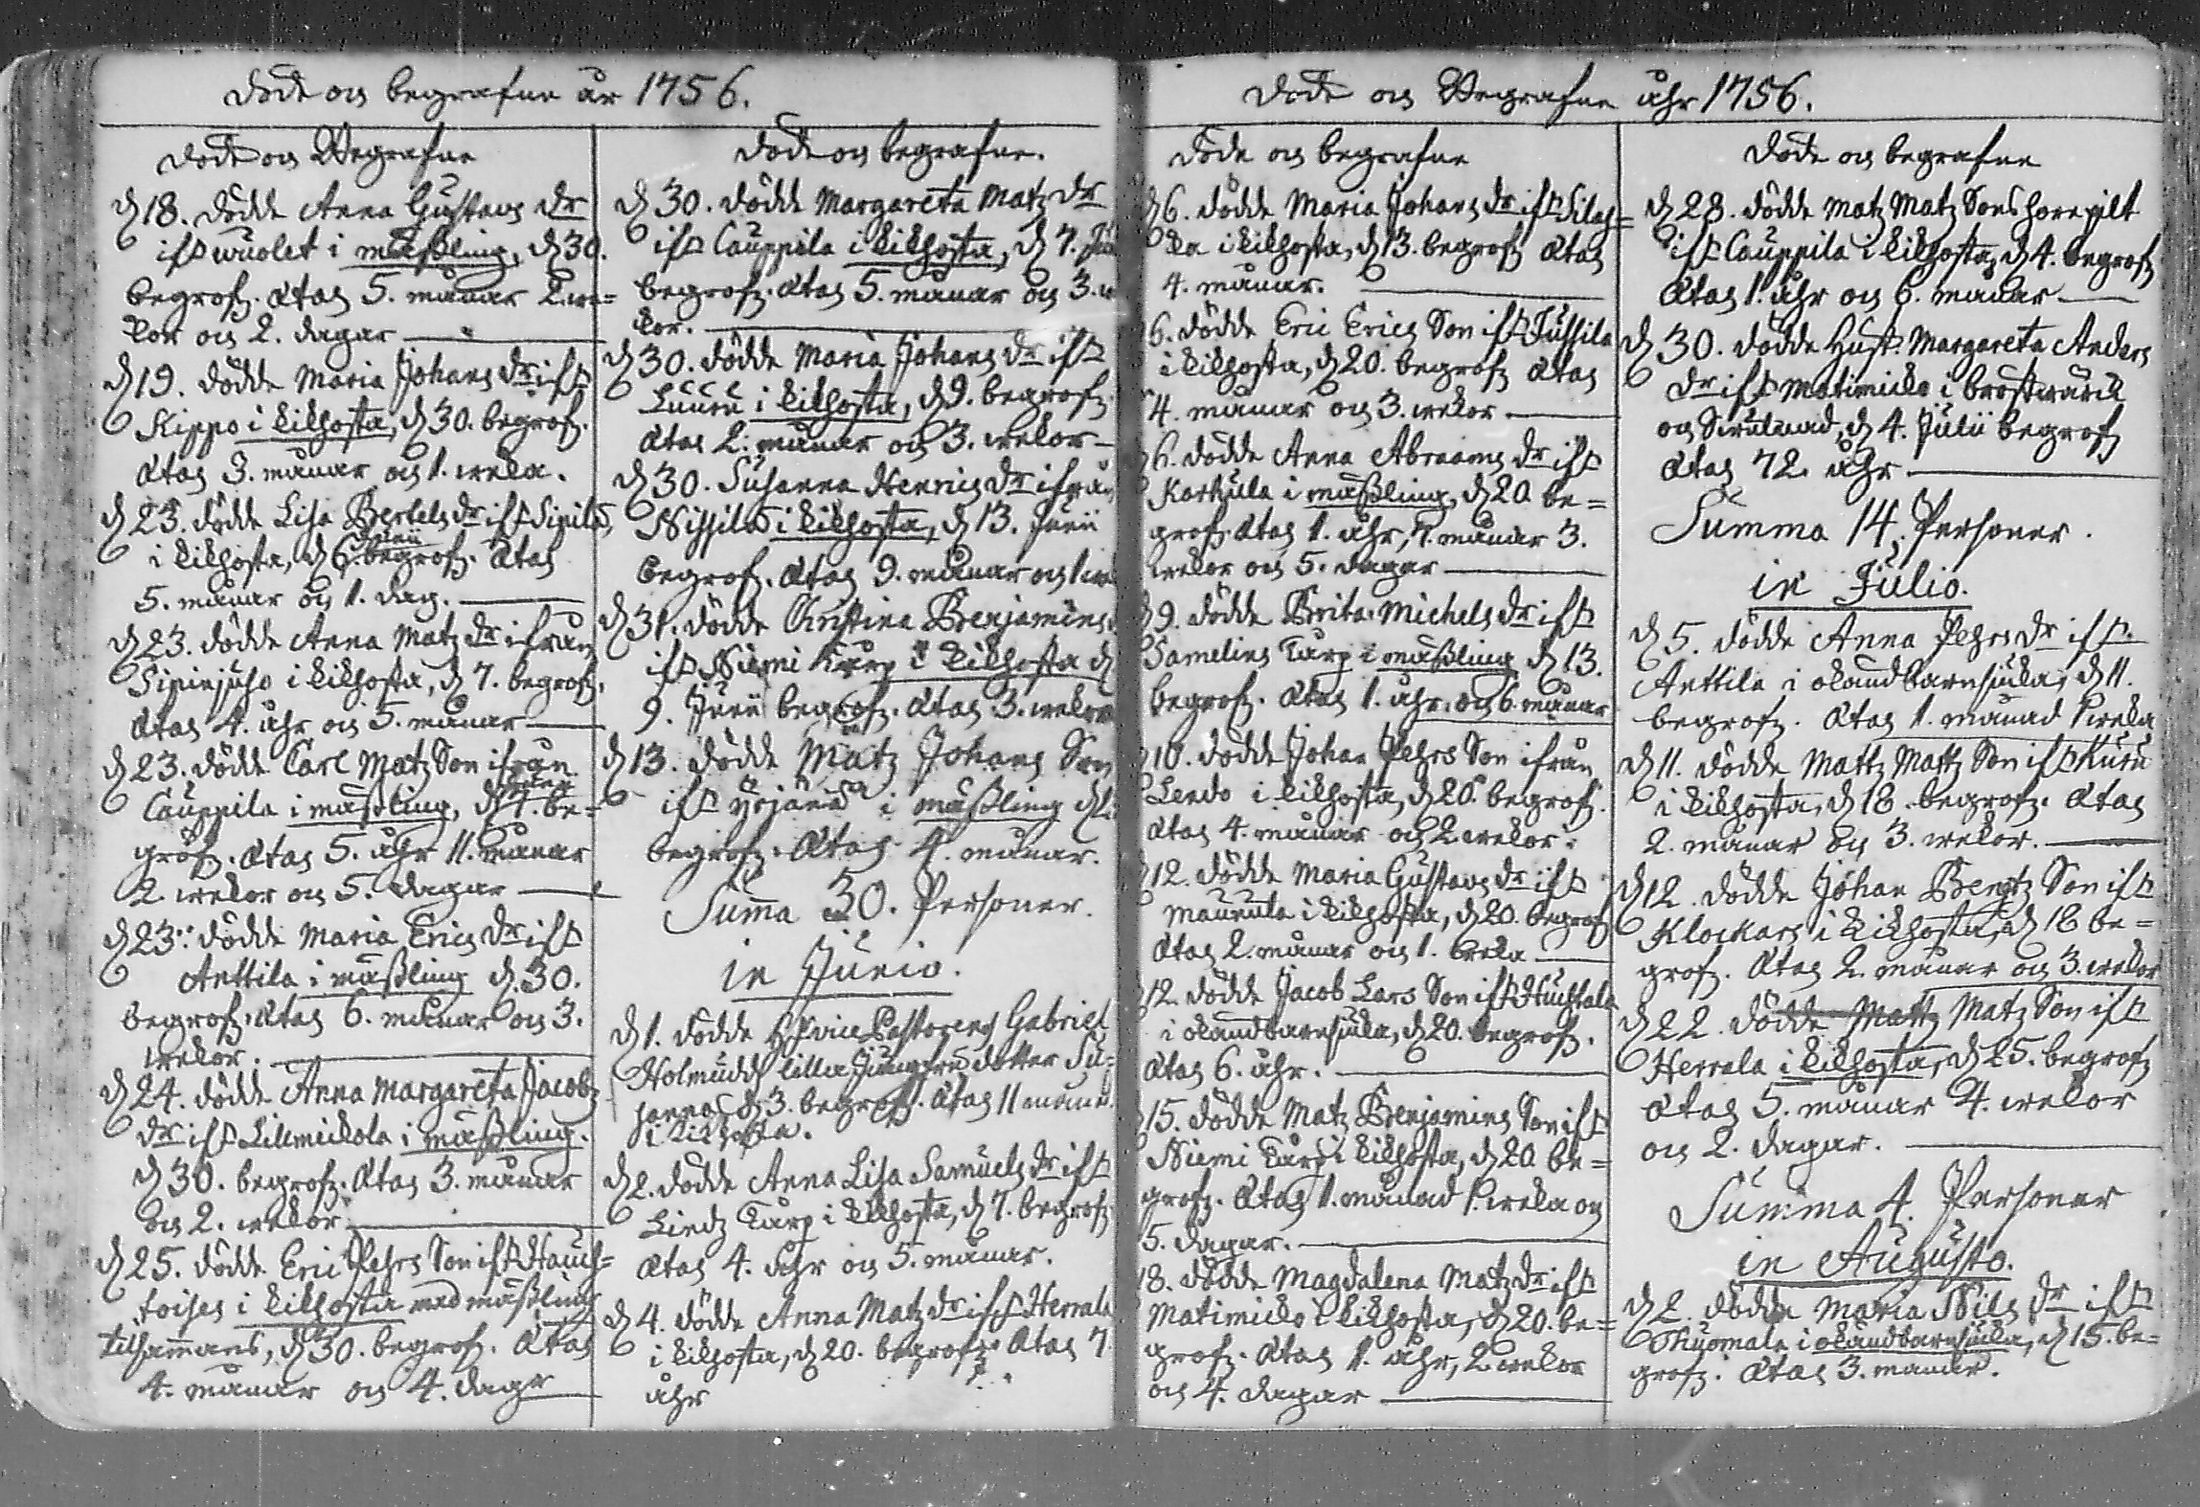 Döde och begrafne år 1756.
Döde och Begrafne
d 18. Dödde Anna Gustavs dr
ifr. wuolet i mäßling, d 30.
begrofz. Ålas 5. månar 2. we=
kor och 2. dagar
d 19. dödde Maria Johans dr ifr
Kippo i kikhosta, d 30. begrofz.
Ålas 3. månar och 1. weka.
d 23. dödde Lisa Bertels dr ifr Sipila,
i kikhosta, d 6. Junii begrofz. Ålas
5. månar och 1. dag.
d 23. dödde Anna Matz dr ifrån
Sipinjuho i kikhosta, d 7. begrofz,
Ålas 4. åhr och 5. månar
d 23. dödde Carl Matz Son ifrån
Cauppila i mäßling, d 7. Junii be=
grofz. Ålas 5. åhr 11. månar
2. wekor och 5. dagar
d 23. dödde Maria Erics dr ifr
Anttila i mäßling d. 30.
begrofz. Ålas 6. månar och 3.
wekor.
d 24. dödde Anna Margareta Jacobz
dr ifr Lillmickola i mäßling.
d 30. begrofz. Ålas 3. månar
och 2. wekor
d 25. dödde Eric Pehrs Son ifr Hauch=
toises i kikhosta med mäßling
tilsammans, d 30. begrofz. Ålas
4. månar och 4. dagr
Döde och begrafne.
d 30. dödde Margareta Matz dr
ifr Cauppila i kikhosta, d 7.
begrofz. Ålas 5. månar och 3. w
kor.
d 30. dödde Maria Johans dr ifr
Luuru i kikhosta, d 9. begrofz.
Ålas 2. månar och 3. wekor
d 30. Susanna Henrics dr ifrån
Nissila i kikhosta, d 13. Junii
begrofz. Ålas 9. månar och 1 we
d 31. dödde Christina Benjamins
ifr Niemi Tårp i kikhosta d
9. Junii begrofz. Ålas 3. wekor
d 13. dödde Matz Johans Son
ifr Yrjänä i mäßling d 2.
begrofz. Ålas 4. månar.
Sum̄a 30. Personer.
in Junio.
d 1. dödde H Vice Pastorens Gabriel
Holmudds lilla Jungfru dotter Su=
sanna, d 3. begrofz. Ålas 11 månar
i kikhosta.
d 2. dödde Anna Lisa Samuels dr ifr
Lindz Tårp i kikhosta, d 7. begrofz
Ålas 4. åhr och 5. månar.
d 4. dödde Anna Matz dr ifr Herrala
i kikhosta, d 20. begrofz. Ålas 7
åhr
Döde och Begrafne åhr 1756.
Döde och begrafne
d 6. dödde Maria Johans dr ifr
ka i kikhosta, d 13. begrofz Ålas
4. månar.
6. dödde Eric Erics Son ifr Jussila
i kikhosta, d 20. begrofz Ålas
4. månar och 3. wekor
6. dödde Anna Abraams dr ifr
Karhula i mäßling, d 20 be=
grofz. Ålas 1. åhr, 7. månar 3.
wekor och 5. dagar
d 9. dödde Brita Michels dr ifr
Samelins Tårp i mäßling d 13.
begrofz. Ålas 1. åhr. och 6. månar
10. dödde Johan Pehrs Son ifrån
Lendo i kikhosta, d 20. begrofz.
Ålas 4. månar och 2 wekor.
12. dödde Maria Gustavs dr ifr
Maunula i kikhosta, d 20. begrofz
Ålas 2. månar och 1. weka
12. dödde Jacob Lars Son ifr Huchtala
i okändbarnsjuka, d 20. begrofz.
Ålas 6. åhr.
15. dödde Matz Benjamins Son ifr
Niemi Tårp i kikhosta, d 20 be=
grofz. Ålas 1. månad 1. weka och
5. dagar.
18. dödde Magdalena Matz dr ifr
Matimicko i kikhosta, d 20. be=
grofz. Ålas 1. åhr, 2 wekor
och 4. dagar
Döde och begrafne
d 28. dödde Matz Matz Sons
ifr Cauppila i kikhosta, d 4. begrofz
Ålas 1. åhr och 6. månar
d 30. dödde Hust. Margareta Anders
dr ifr Matimicko i bröstwärck
och d 4. Julii begrofz
Ålas 72. åhr
Summa 14. Personer.
in Julio.
d 5. dödde Anna Pehrs dr ifr.
Anttila i okändbarnsjuka, d 11.
begrofz. Ålas 1. månad 1 weka
d 11. dödde Mattz Mattz Son ifr Kuru
i kikhosta, d 18. begrofz. Ålas
2. månar och 3. wekor.
d 12. dödde Johan Bengtz Son ifr
Klockars i kikhosta, d 18 be=
grofz. Ålas 2. månar och 3. wekor
d 22. dödde Mattz Matz Son ifr
Herrala i kikhosta, d 25. begrofz
Ålas 5. månar 4. wekor
och 2. dagar.
Summa 4. Personer
in Augusto.
d 2. dödde Maria Nils dr ifr
Thuomala i okändbarnsjuka, d 15. be=
grofz. Ålas 3. månar.